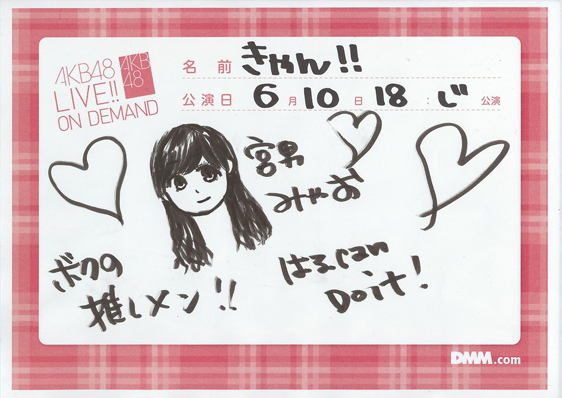 AKB48
LIVE!!
ON DEMAND
AKB
48
名前 きゃん!!
公演日 6月10日 18:じ 公演
宮男
みゃお
ボクの
推しメン!!
はるcan
Do it!
DMM.com